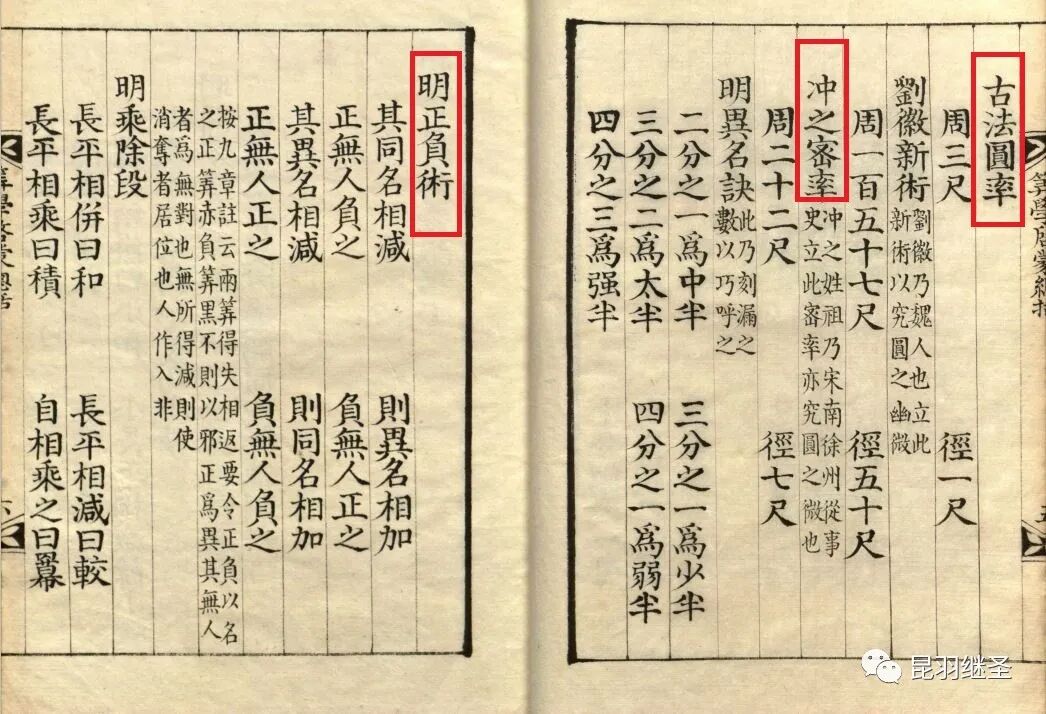 古法圓率
周三尺　徑一尺
劉徽新術　劉徽乃魏人也立此
新術以究圓之幽微
周一百五十七尺　徑五十尺
冲之宻率　冲之姓祖乃宋南徐州從事
史立此宻率亦究圓之微也
周二十二尺　徑七尺
明異名訣　此乃刻漏之
數以巧呼之
二分之一爲中半　三分之一爲少半
三分之二爲太半　四分之一爲弱半
四分之三爲强半
明正負術
其同名相減　則異名相加
正無人負之　負無人正之
其異名相減　則同名相加
正無人正之　負無人負之
按九章註云兩筭得失相返要令正負以名
之正筭赤負筭黑不則以邪正爲異其無人
者爲無對也無所得減則使
消奪者居位也人作入非
明乘除段
長平相併曰和　長平相減曰較
長平相乘曰積　自相乘之曰冪
昆羽继圣